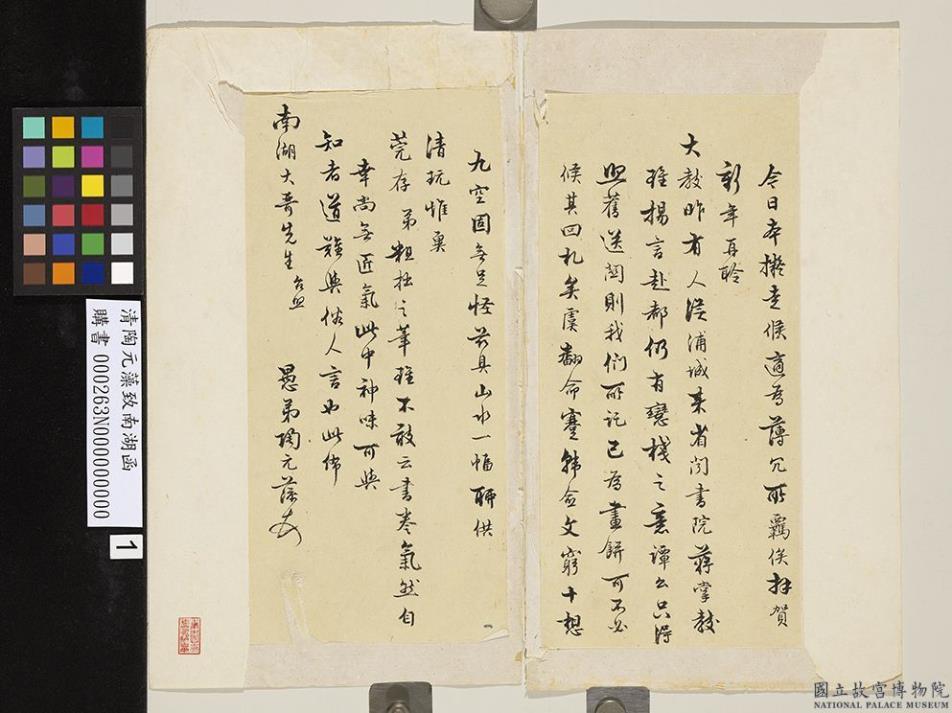 今日本擬走候適為薄冗所羈俟拜賀
新年再聆
大教昨有人從浦城來省聞書院蔣掌教
雖揚言赴都仍有戀棧之意譚公只得
照舊送關則我們所託已為畫餅可不必
候其回札矣虞翻命蹇韓愈文窮十想
九空固無足怪茲具山水一幅聊供
清玩惟冀
莞存弟粗拙之筆雖不敢云書卷氣然自
幸尚無匠氣此中神味可與
知者道難與俗人言也此佈
南湖大哥先生 台照
愚弟陶元藻
清陶元藻致南湖函
購書 000263N000000000
1
國立故宮博物院
NATIONAL PALACE MUSEUM